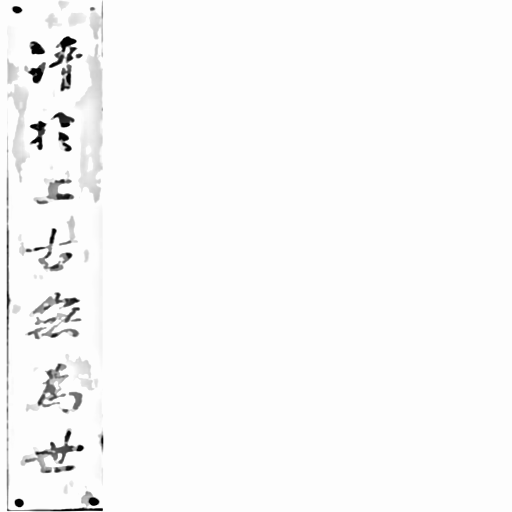 濟於上古無為世